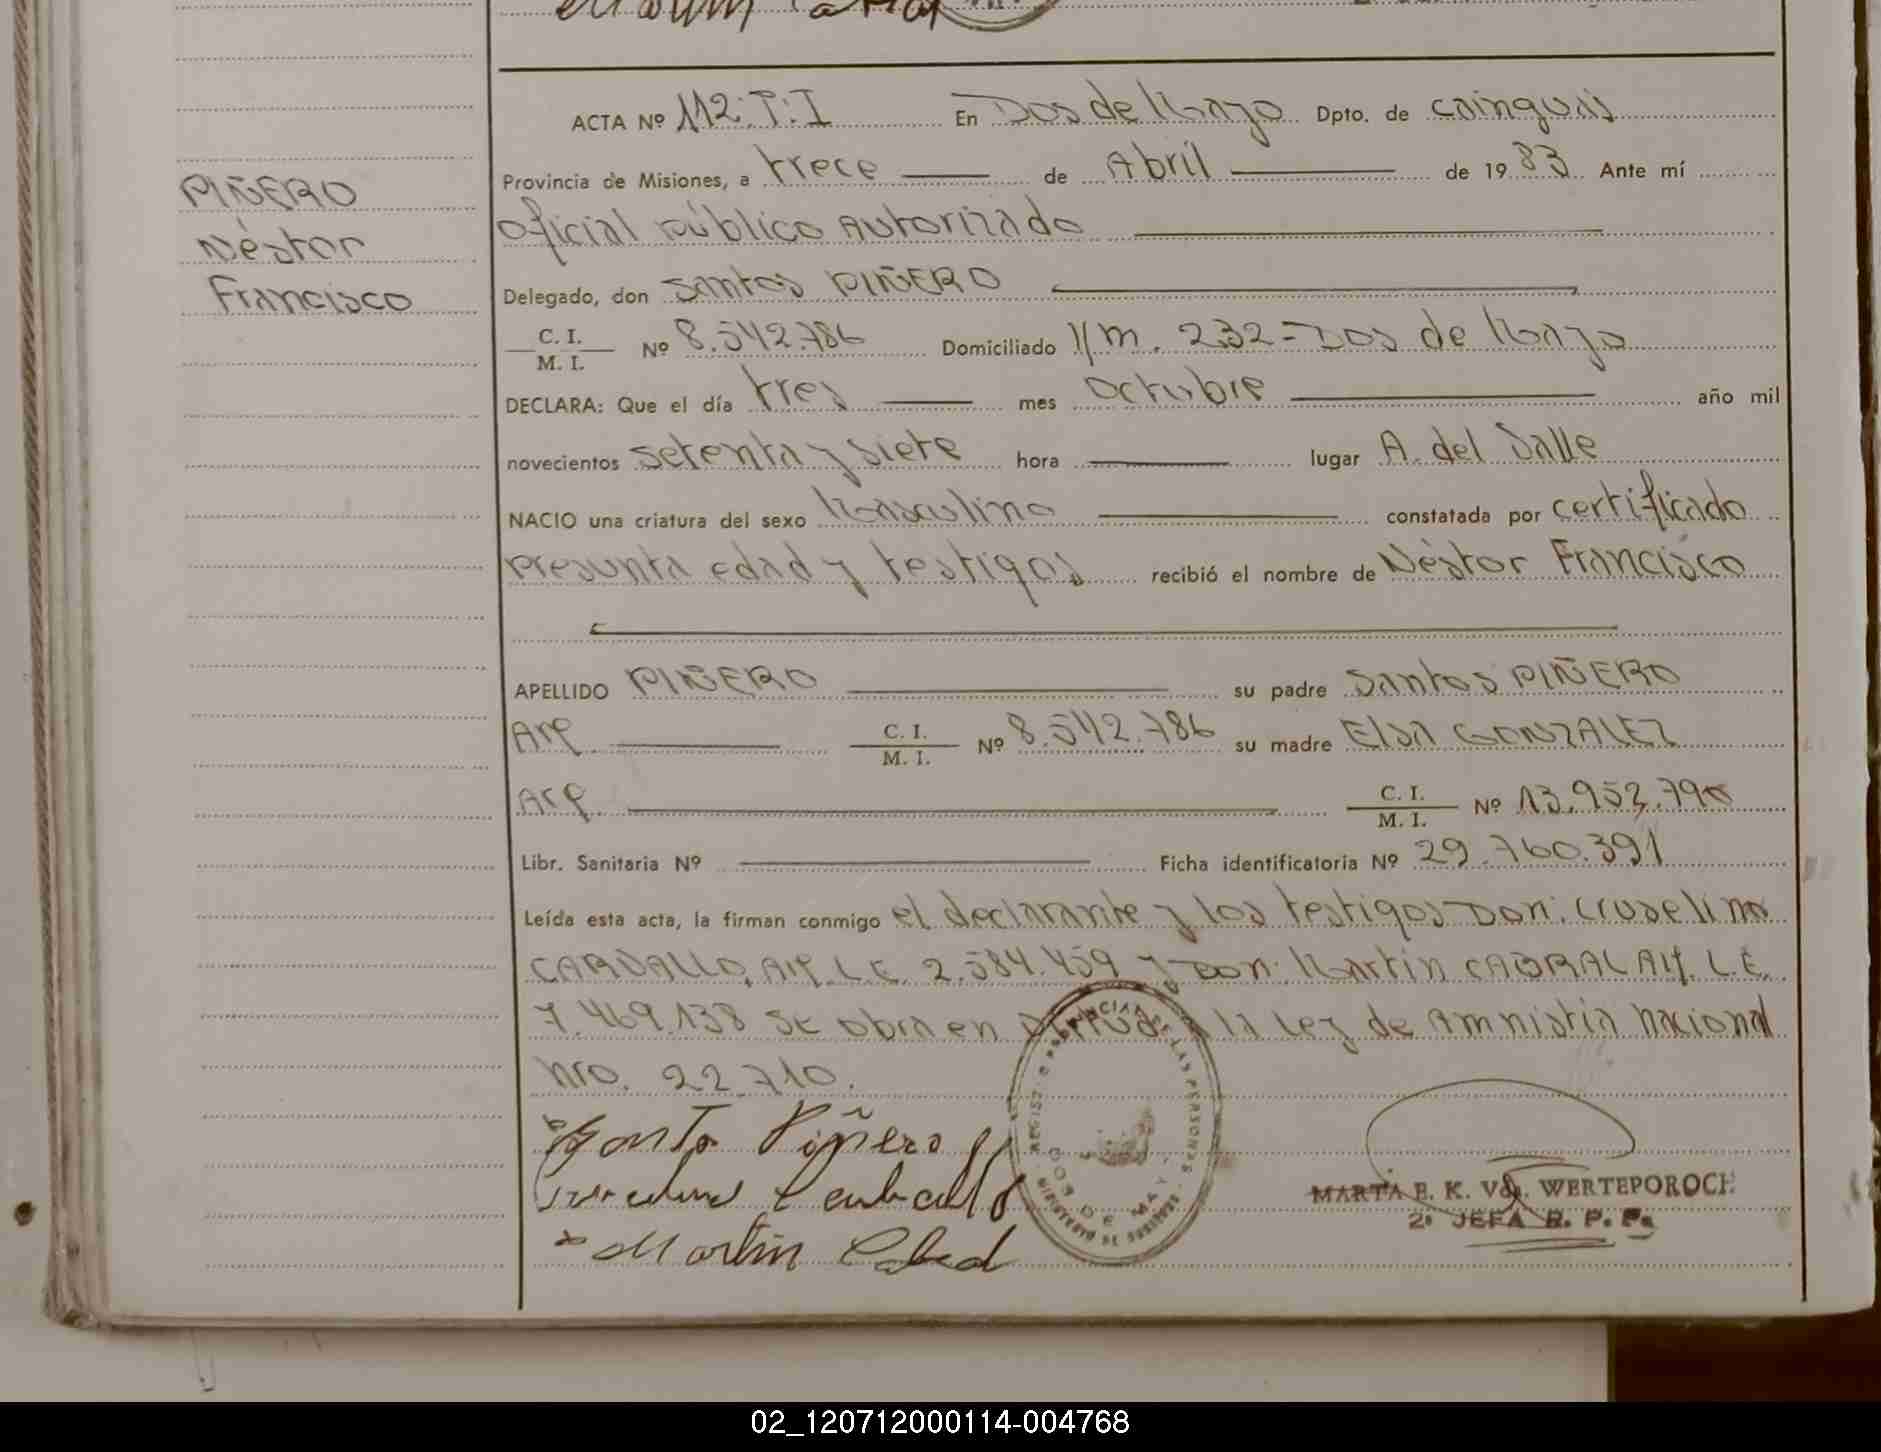 Martin Cabral
ACTA Nº 112. T: I En Dos de Mayo Dpto. de Cainguás
Provincia de Misiones, a trece de Abril de 1983 Ante mí
PIÑERO
Néstor
Francisco
Oficial Público Autorizado
Delegado, don Santos PIÑERO
C. I.
M. I. Nº 8.542.786 Domiciliado Km. 232 = Dos de Mayo
DECLARA: Que el día tres mes Octubre año mil
novecientos setenta y siete hora lugar A. del Valle
NACIO una criatura del sexo Masculino constatada por certificado
presunta edad y testigos recibió el nombre de Néstor Francisco
APELLIDO PIÑERO su padre Santos PIÑERO
Arg. C. I.
M. I. Nº 8.542.786 su madre Elsa GONZALEZ
Arg. C. I.
M. I. Nº 13.952.790
Libr. Sanitaria Nº Ficha identificatoria Nº 29.760.391
Leída esta acta, la firman conmigo el declarante y los testigos Don:
CARVALLO, Arg. L.E. 2.584.459 y Don: Martin CABRAL Arg. L.E.
7.469.138 se obra en virtud a la Ley de Amnistia nacional
nro. 22.710.
Santo Piñero
Martin Cabral
REGIST. PROVINCIAL DE LAS PERSONAS
DOS DE MAYO
MINISTERIO DE GOBIERNO
MARTA E. K. Vda. WERTEPOROCH
2ª JEFA R. P. P.
02_120712000114-004768